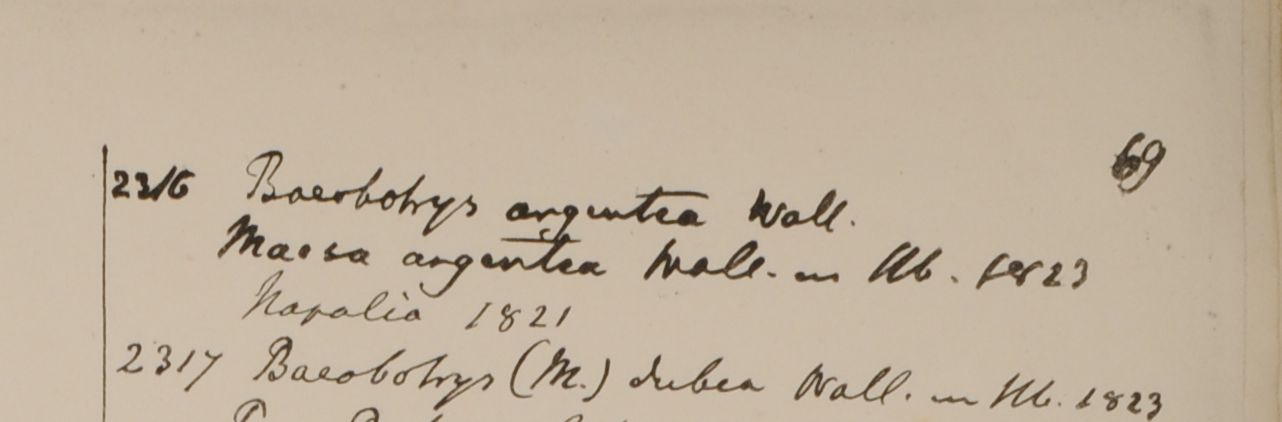 69
2316 Baeobotrys argentea Wall.
Maesa argentea Wall. in Hb. 1823
Napalia 1821
2317 Baeobotrys (M.) dubia Wall. in Hb. 1823